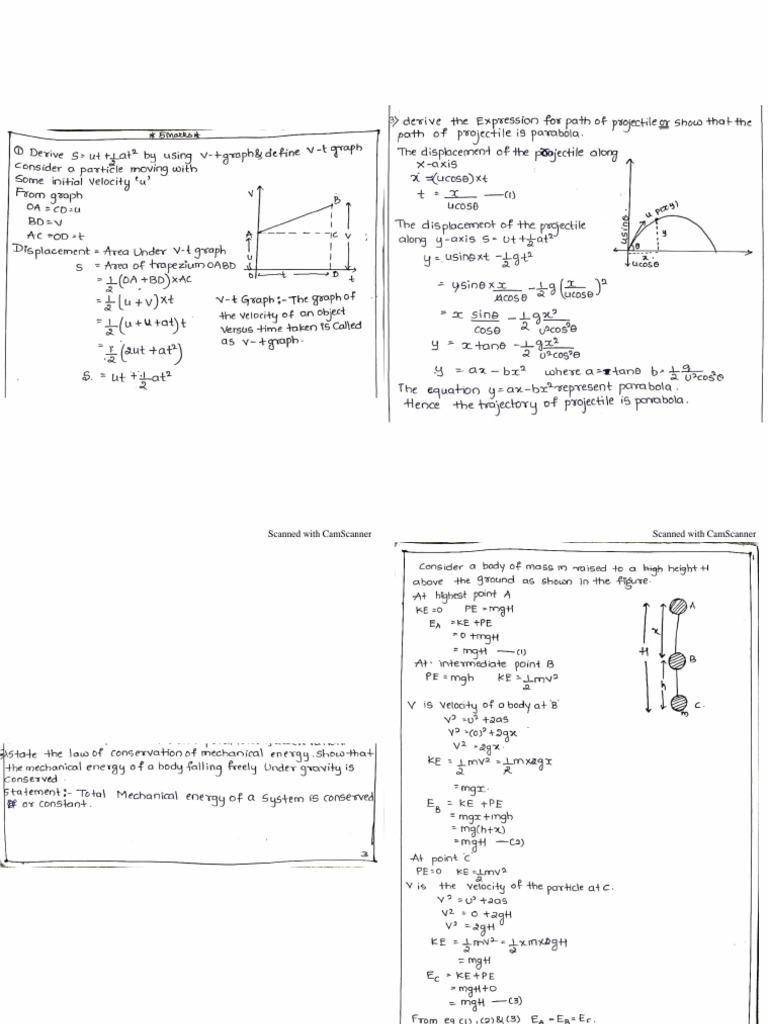 * 5 Marks *
① Derive S = ut + ½at² by using v-t graph & define v-t graph
Consider a particle moving with
Some initial velocity 'u'
From graph
OA = CD = u
BD = V
AC = OD = t
Displacement = Area Under v-t graph
S = Area of trapezium OABD
= ½ (OA + BD) × AC
= ½ (u + v) × t
= ½ (u + u + at) t
= ½ (2ut + at²)
S = ut + ½at²
V
B
A
C
V
u
O
t
D
t
V-t Graph :- The graph of
the velocity of an object
versus time taken is Called
as v-t graph.
derive the Expression for path of projectile or show that the
path of projectile is parabola.
The displacement of the projectile along
x-axis
x = (ucosθ) × t
t = x/ucosθ —(1)
The displacement of the projectile
along y-axis S = ut + ½at²
y = usinθ×t - ½gt²
= usinθ × x/ucosθ - ½g (x/ucosθ)²
= x sinθ/cosθ - ½ gx²/u²cos²θ
y = x tanθ - ½ gx²/u²cos²θ
y = ax - bx² where a = tanθ b = ½ g/u²cos²θ
The equation y = ax - bx² represent parabola.
Hence the trajectory of projectile is parabola.
usinθ
u
P(x,y)
y
θ
x
ucosθ
Scanned with CamScanner
Scanned with CamScanner
State the law of conservation of mechanical energy. Show that
the mechanical energy of a body falling freely Under gravity is
conserved.
Statement :- Total Mechanical energy of a System is conserved
or constant.
3
Consider a body of mass m raised to a high height H
above the ground as shown in the figure.
At highest point A
KE = 0 PE = mgH
E_A = KE + PE
= 0 + mgH
= mgH —(1)
At intermediate point B
PE = mgh KE = ½mv²
V is velocity of a body at 'B'
V² = u² + 2as
V² = (0)² + 2gx
V² = 2gx
KE = ½mv² = ½m×2gx
= mgx.
E_B = KE + PE
= mgx + mgh
= mg(h+x)
= mgH —(2)
At point 'C'
PE = 0 KE = ½mv²
V is the velocity of the particle at C.
V² = u² + 2as
V² = 0 + 2gH
V² = 2gH
KE = ½mv² = ½×m×2gH
= mgH
E_C = KE + PE
= mgH + 0
= mgH —(3)
From eq (1), (2) & (3) E_A = E_B = E_C.
A
x
H
B
h
C.
m